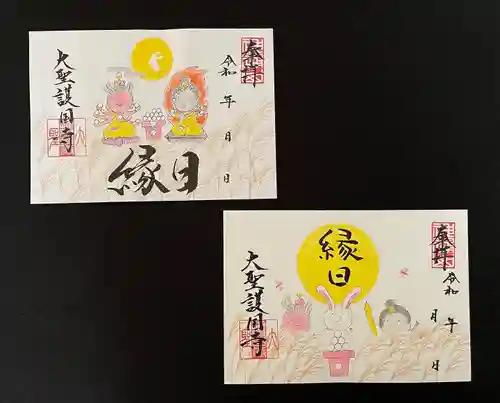 奉拝
令和 年 月 日
縁日
大聖護国寺
奉拝
令和 年 月 日
縁日
大聖護国寺